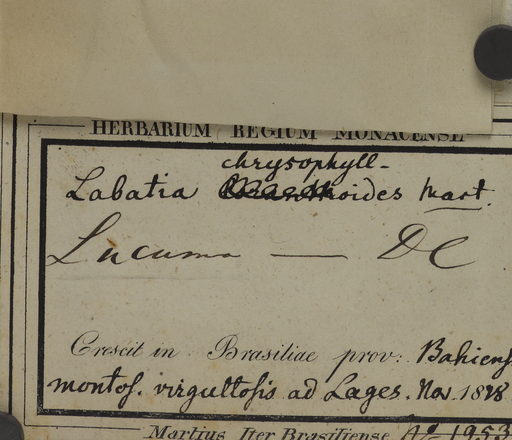 HERBARIUM REGIUM MONACENSE
chrysophyll-
Labatia oides Mart.
Lucuma — DC
Crescit in Brasiliae prov: Bahiens
montos. virgultosis ad Lages. Nov. 1818
Martius Iter Brasiliense No 1953